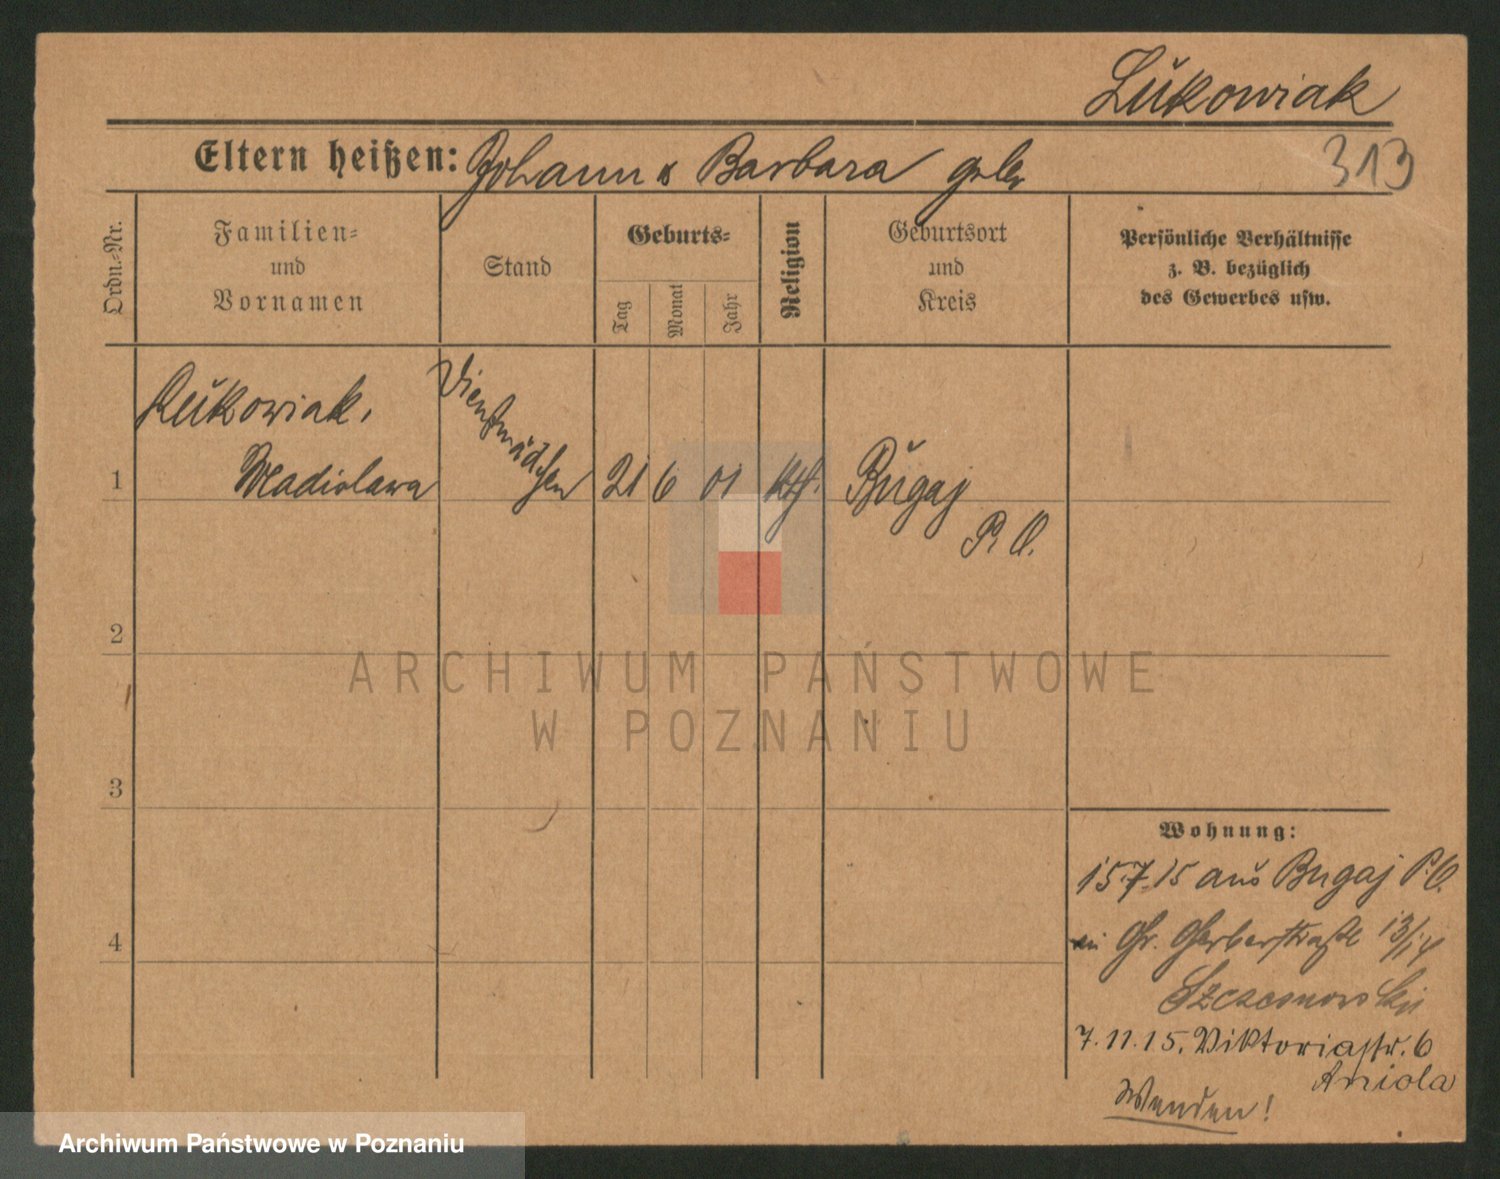 Lukowiak
Eltern heißen: Johann & Barbara geb
313
Ordn.-Nr.
Familien-
und
Vornamen
Stand
Geburts-
Tag
Monat
Jahr
Religion
Geburtsort
und
Kreis
Persönliche Verhältnisse
z. B. bezüglich
des Gewerbes usw.
1
Lukowiak,
Wladislawa
Dienstmädchen
21
6
01
kth.
Bugaj
P. O.
2
3
4
Wohnung:
15.7.15 aus Bugaj P. O.
Gr. Gerberstraße 13/14
7.11.15. Viktoriastr. 6
Aniola
Wenden!
ARCHIWUM PAŃSTWOWE
W POZNANIU
Archiwum Państwowe w Poznaniu